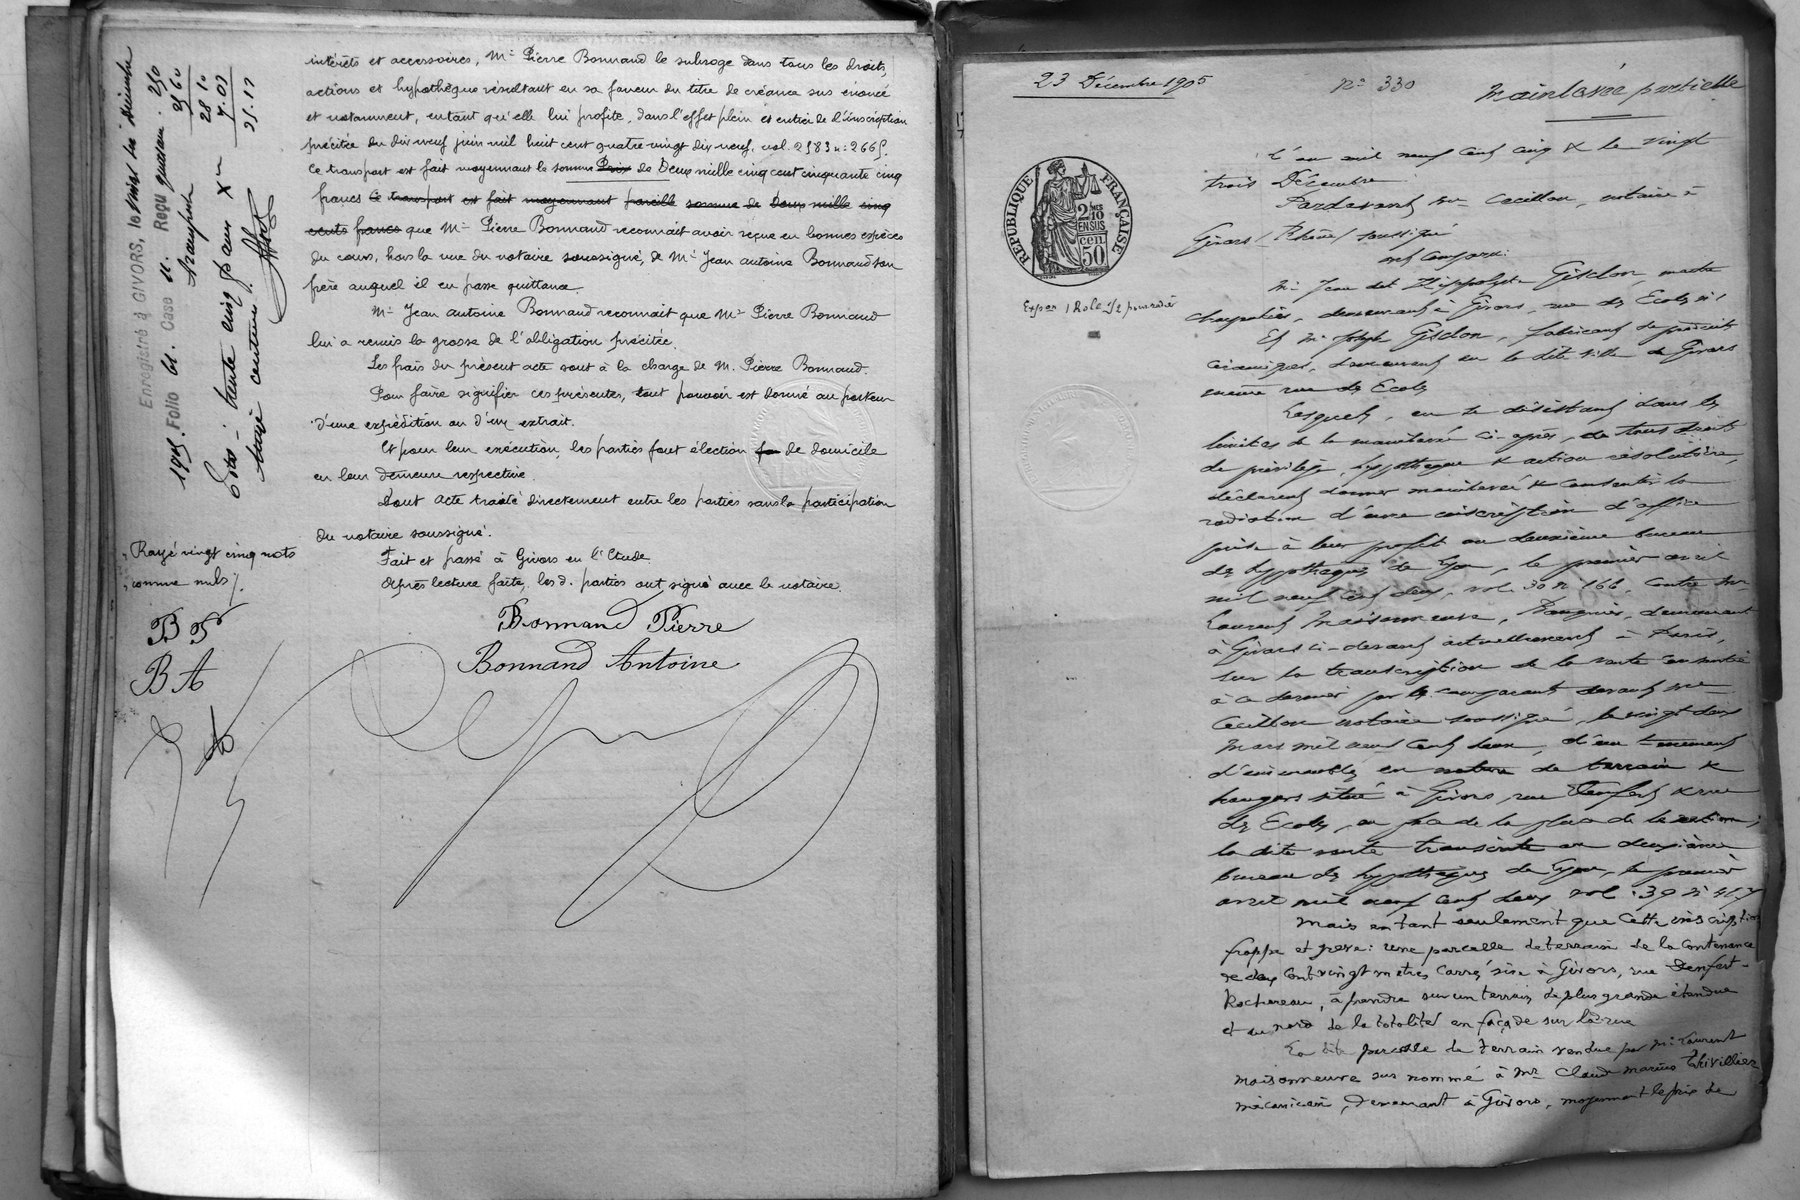 intérêts et accessoires, Mr Pierre Bonnand le subroge dans tous les droits,
actions et hypothèque résultant en sa faveur du titre de créance sus énoncé
et notamment, entant qu'elle lui profite, dans l'effet plein et entier de l'inscription
précitée du dix neuf juin mil huit cent quatre vingt dix neuf, vol. 2583 n: 2665.
Ce transport est fait moyennant la somme Prix de Deux mille cinq cent cinquante cinq
francs Ce transport est fait moyennant pareille somme de Deux mille cinq
cents francs que Mr Pierre Bonnand reconnaît avoir reçue en bonnes espèces
du cours, hors la vue du notaire soussigné, de Mr Jean Antoine Bonnand son
frère auquel il en passe quittance.
Mr Jean Antoine Bonnand reconnait que Mr Pierre Bonnand
lui a remis la grosse de l'obligation précitée.
Les frais du présent acte sont à la charge de M. Pierre Bonnand.
Pour faire signifier ces présentes, tout pouvoir est donné au porteur
d'une expédition ou d'un extrait.
Et pour leur exécution, les parties font élection de domicile
en leur demeure respective.
Dont acte traité directement entre les parties sans la participation
du notaire soussigné.
Fait et passé à Givors en l'Etude
Après lecture faite, les d. parties ont signé avec le notaire.
Bonnand Pierre
Bonnand Antoine
Enregistré à GIVORS, le vingt six décembre
1905. Folio 61. Case 11. Reçu quarante
Dix: trente cinq francs Xme
centimes.
250
25 60
28 10
7.03
35.13
Rayé vingt cinq mots
comme nuls
B P
B A
23 Décembre 1905
No 330
Mainlevée partielle
RÉPUBLIQUE FRANÇAISE
2/10 EN SUS
50 cen
Expon 1 Role 1/2 pour radier
L'an mil neuf cent cinq & le vingt
trois Décembre
Pardevant Me Cecillon, notaire à
Givors (Rhône) soussigné
ont comparu:
Mr Jean dit Hippolyte Gisclon, maître
charpentier, demeurant à Givors, rue des Ecoles
Et Mr Joseph Gisclon, fabricant de produits
céramiques, demeurant en la dite ville de Givors
même rue des Ecoles
Lesquels, en se désistant dans les
limites de la mainlevée ci-après, de tous droits
de privilège, hypothèque & action résolutoire,
déclarent donner mainlevée & consentir la
radiation d'une inscription d'office
prise à leur profit au deuxième bureau
des hypothèques de Lyon, le premier avril
mil neuf cent deux, vol. 30 No 166, contre Mr
Laurent Maisonneuve, demeurant
à Givors ci-devant actuellement à Paris,
sur la transcription de la vente consentie
à ce dernier par les comparants devant Me
Cecillon notaire soussigné, le vingt deux
mars mil neuf cent deux, d'un tènement
d'immeubles en nature de terrain &
hangars situé à Givors, rue Denfert & rue
des Ecoles,
la dite vente transcrite au deuxième
bureau des hypothèques de Lyon, le premier
avril mil neuf cent deux vol. 39 No
Mais en tant seulement que cette inscription
frappe et grève: Une parcelle de terrain de la contenance
de deux cent vingt mètres carrés sise à Givors, rue Denfert-
Rochereau, à prendre sur un terrain de plus grande étendue
et au nord de la totalité en façade sur la rue
La dite parcelle de terrain vendue par Mr Laurent
Maisonneuve sus nommé à Mr Claude Marius Thivillier
mécanicien, demeurant à Givors, moyennant le prix de